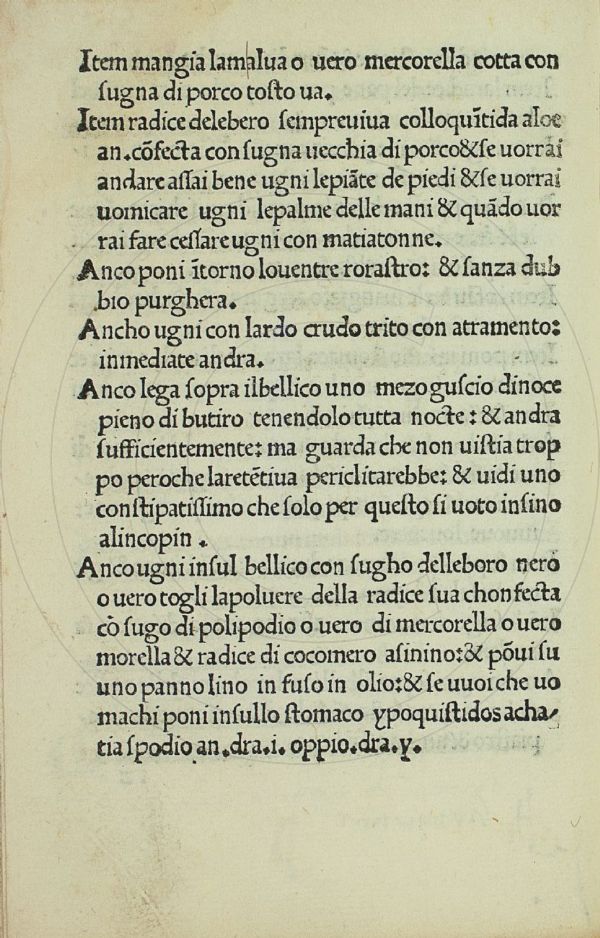 Item mangia lamalua o uero mercorella cotta con
ſugna di porco toſto ua.
Item radice delebero ſempreuiua colloquĩtida aloe
an.cõfecta con ſugna uecchia di porco&ſe uorrai
andare aſſai bene ugni lepiãte de piedi &ſe uorrai
uomicare ugni lepalme delle mani & quãdo uor
rai fare ceſſare ugni con matiatonne.
Anco poni ĩtorno louentre roraſtro: & ſanza dub
bio purghera.
Ancho ugni con lardo crudo trito con atramento:
inmediate andra.
Anco lega ſopra ilbellico uno mezo guſcio dinoce
pieno di butiro tenendolo tutta nocte : & andra
ſufficientemente: ma guarda che non uiſtia trop
po peroche laretẽtiua periclitarebbe: & uidi uno
conſtipatiſſimo che ſolo per queſto ſi uoto inſino
alincopin .
Anco ugni inſul bellico con ſugho delleboro nero
o uero togli lapoluere della radice ſua chonfecta
cõ ſugo di polipodio o uero di mercorella o uero
morella & radice di cocomero aſinino:& põui ſu
uno panno lino in fuſo in olio:& ſe uuoi che uo
machi poni inſullo ſtomaco ypoquiſtidos acha/
tia ſpodio an.dra.i. oppio.dra.y.